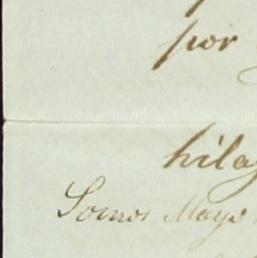 por
hila
Somos Mayo